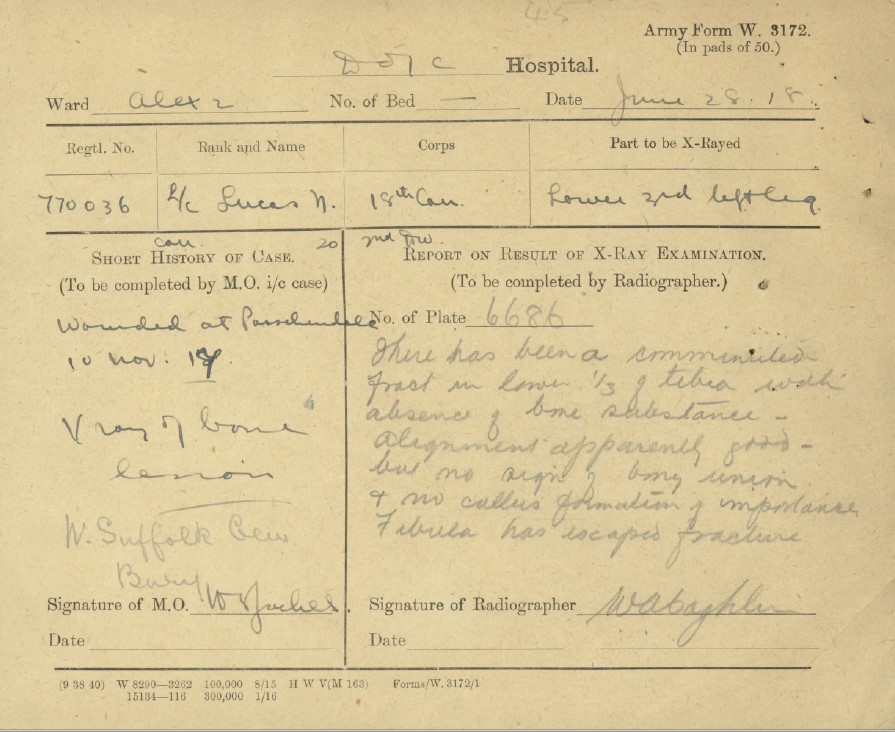 45
Army Form W. 3172.
(In pads of 50.)
Hospital.
Ward Alex 2 No. of Bed — Date June 28. 18.
Regtl. No. Rank and Name Corps Part to be X-Rayed
770036 L/c Lucas N. 18th Can. Lower 3rd left leg
can. 20 2nd
SHORT HISTORY OF CASE. REPORT ON RESULT OF X-RAY EXAMINATION.
(To be completed by M.O. i/c case) (To be completed by Radiographer.)
Wounded at Passchendele
10 Nov. 17.
X ray of bone
lesion
W. Suffolk Gen
Bury
Signature of M.O.
Date
No. of Plate 6686
There has been a comminuted
fract in lower 1/3 of tibia with
absence of bone substance -
alignment apparently good -
but no sign of bony union
& no callus formation of importance
Fibula has escaped fracture
Signature of Radiographer
Date
(9 38 40) W 8290—3262 100,000 8/15 H W V(M 163) Forms/W. 3172/1
15134—116 300,000 1/16